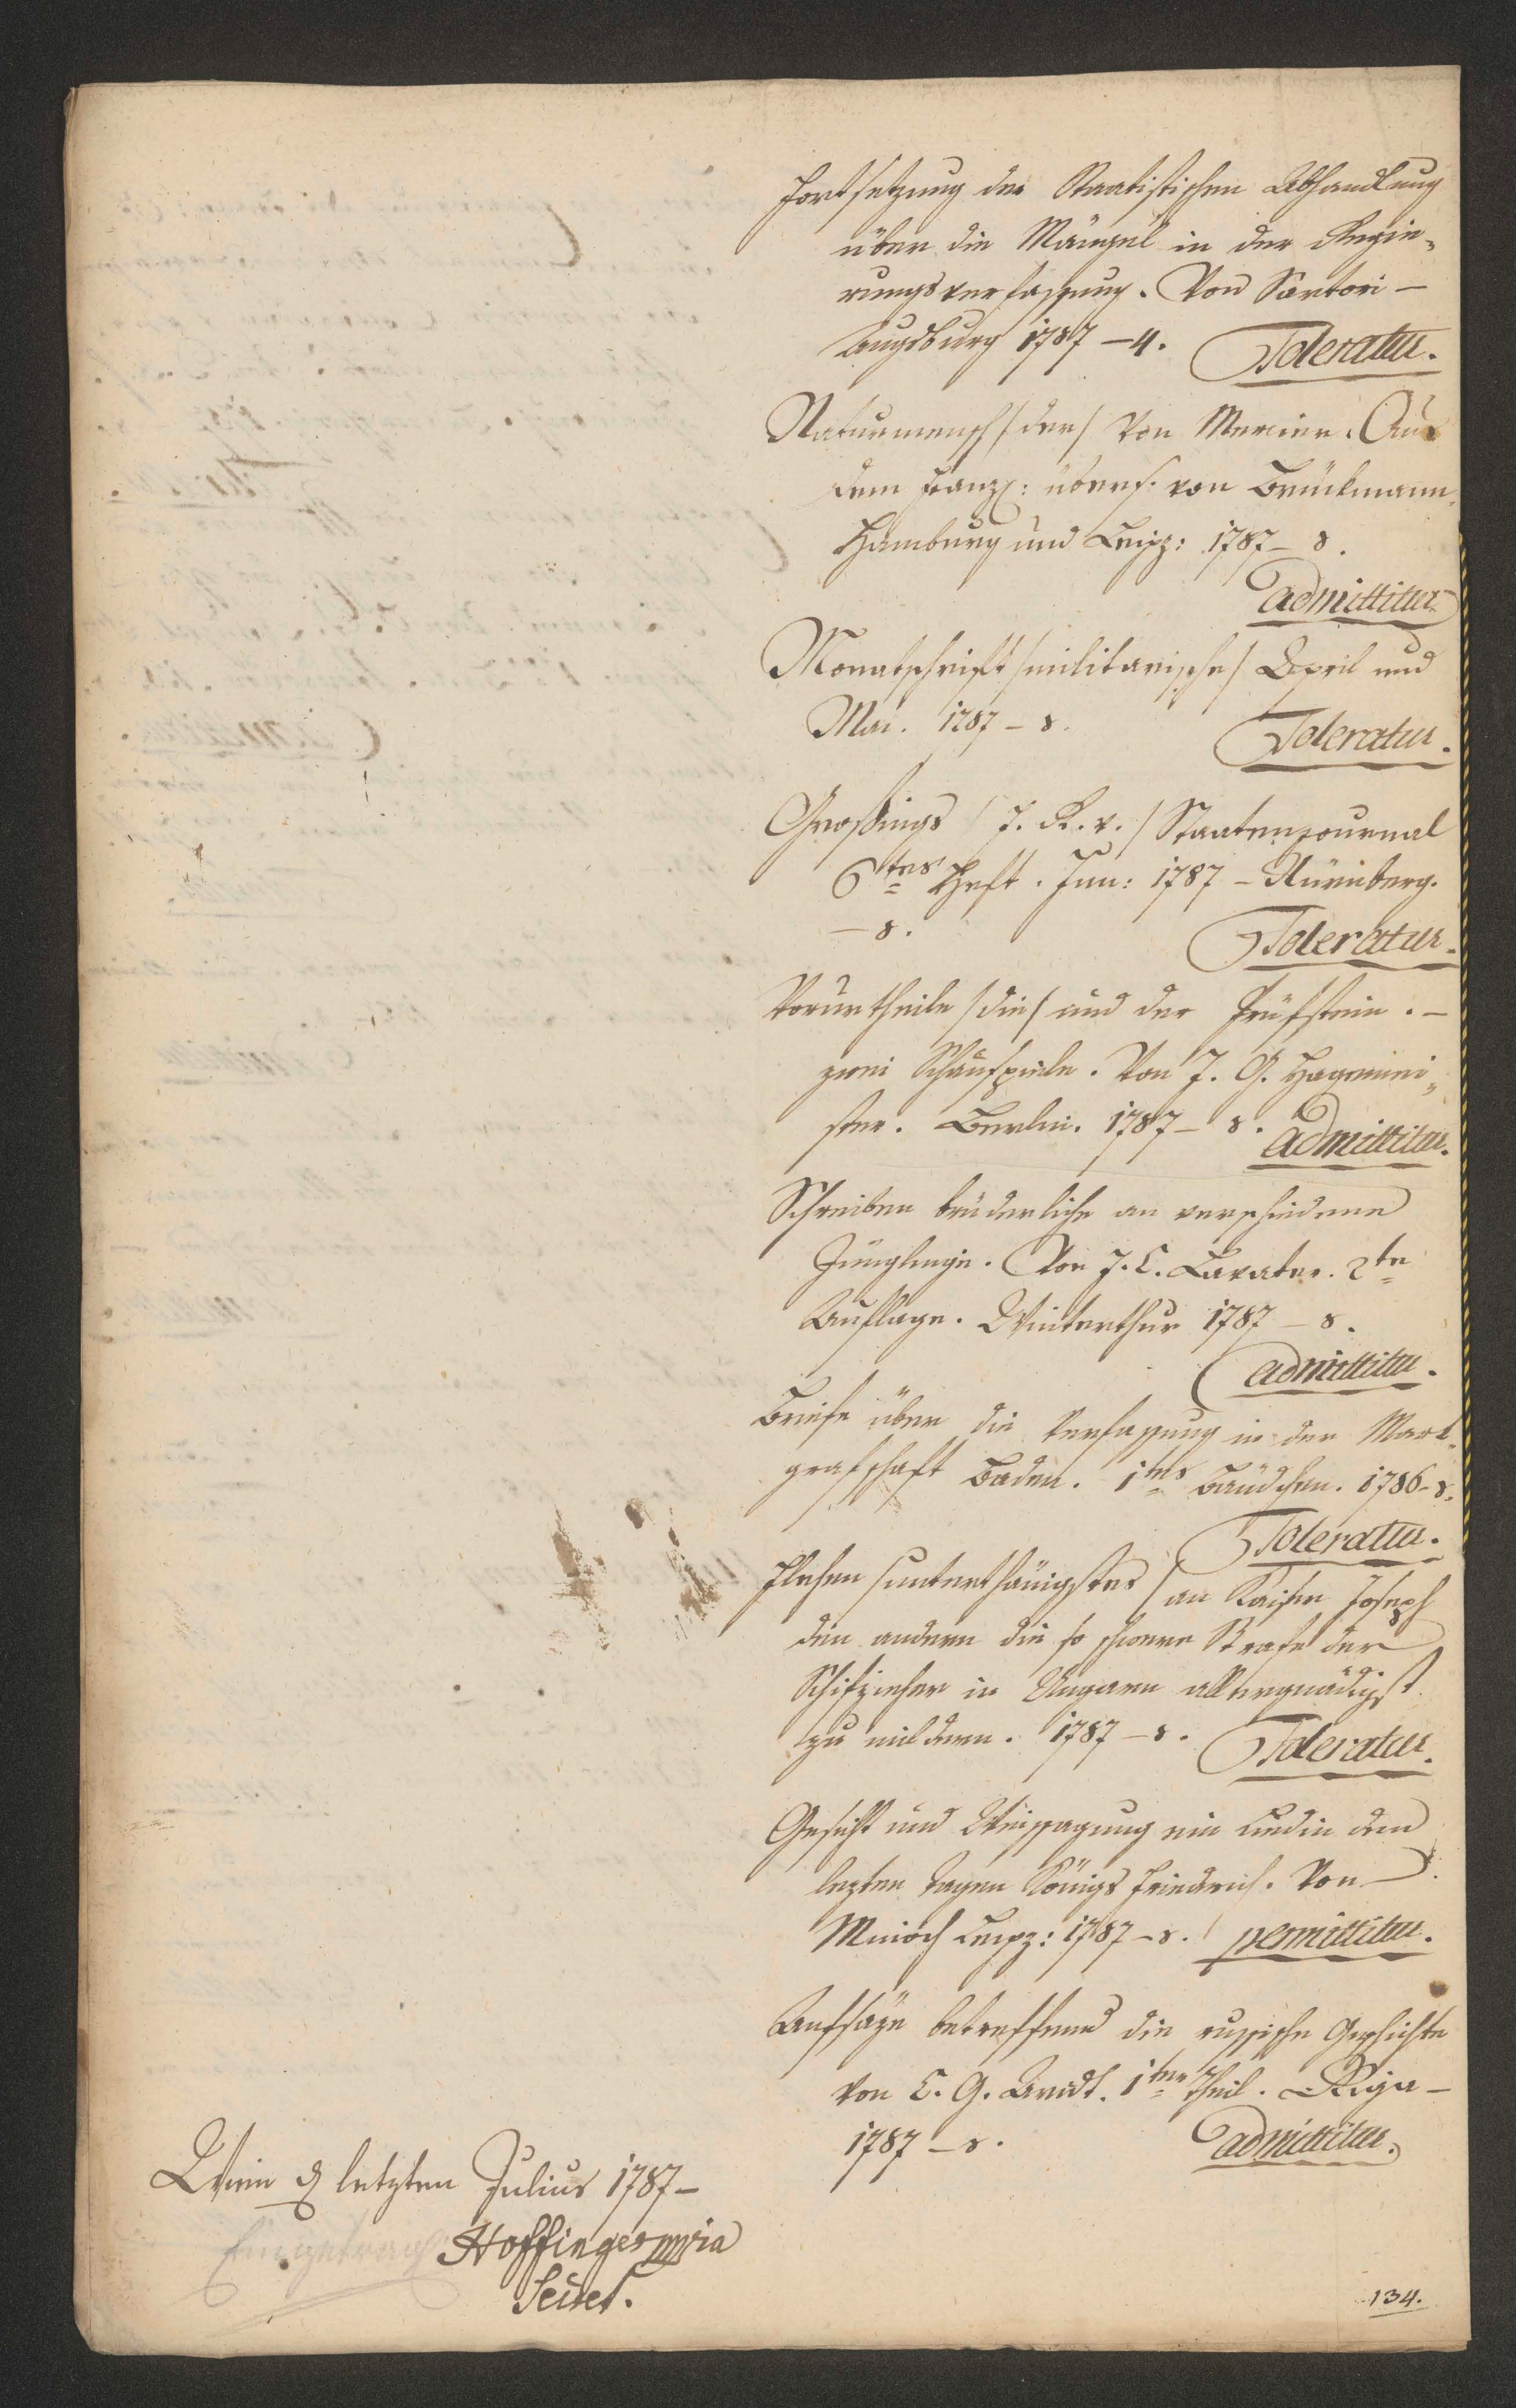 Fortsetzung der Statistischen Abhandlung
über die Mängel in der Regie-
rungsverfassung. Von Sartori –
Augsburg 1787 – 4. Toleratur.
Naturmensch /der/ Von Mercier. Aus
dem Franz: übers. von Brückmann.
Hamburg und Leipz: 1787 – 8.
admittitur
Monatschrift /militarische/ April und
Mai. 1787 – 8. Toleratur.
Großings /J. R. v./ Staatenjournal
6tes Heft. Jun: 1787 – Nürnberg.
– 8. Toleratur.
Vorurtheile /die/ und der Prüfstein. –
zwei Schauspiele. Von J. G. Hagemei-
ster. Berlin. 1787 – 8. admittitur.
Schreiben brüderliche an verschiedene
Jünglinge. Von J. C. Lavater. 2te
Auflage. Winterthur 1787 – 8.
admittitur.
Briefe über die Verfassung in der Mark-
grafschaft Baden. 1tes Bändchen. 1786 – 8.
Toleratur.
Flehen /unterthänigstes/ an Kaiser Joseph
den andern die so schwere Strafe der
Schifzieher in Ungarn allergnädigst
zu mildern. 1787 – 8. Toleratur.
Gesicht und Weissagung ein Lied in den
lezten Tagen Königs Friedrich. Von
Mnioch Leipz: 1787 – 8. permittitur.
Aufsäze betreffend die russische Geschichte
von C. G. Arndt. 1ter Theil. Riga –
1787 – 8. admittitur.
Wien d letzten Julius 1787 –
Eingetragen Hoffinger mpria
134.